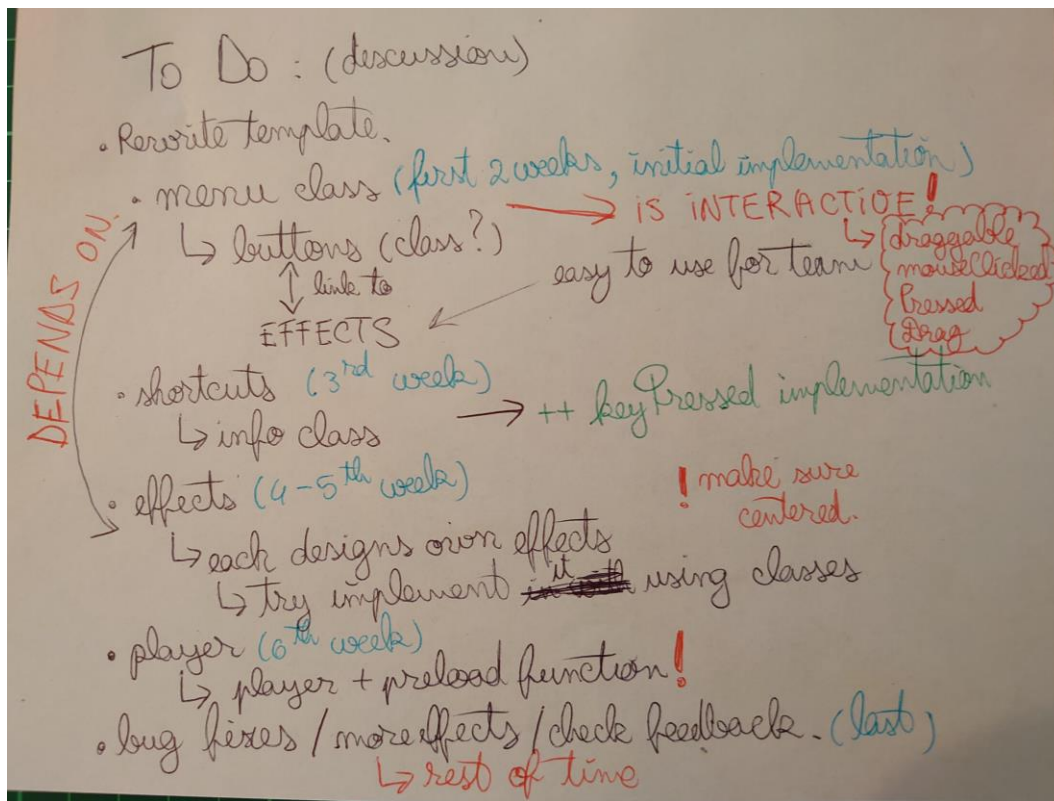 To Do : (discussion)
• Rewrite template.
• menu class (first 2 weeks, initial implementation)
→ is INTERACTIVE!
↳ draggable
mouseClicked
Pressed
Drag
↳ buttons (class?)
easy to use for team
↕ link to
EFFECTS
DEPENDS ON.
• shortcuts (3rd week)
→ ++ keyPressed implementation
↳ info class
• effects (4-5th week)
! make sure
centered.
↳ each designs own effects
↳ try implement it using classes
• player (6th week)
↳ player + preload function!
• bug fixes / more effects / check feedback. (last)
↳ rest of time